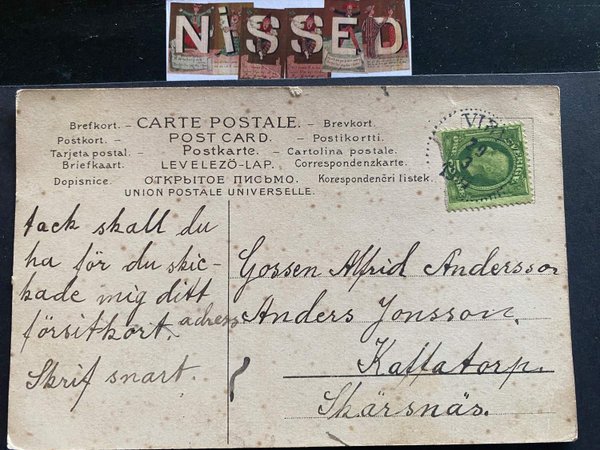 NiSSED
Brefkort. – CARTE POSTALE. – Brevkort.
Postkort. – POST CARD. – Postikortti.
Tarjeta postal. – Postkarte. – Cartolina postale.
Briefkaart. – LEVELEZÖ-LAP. – Correspondenzkarte.
Dopisnice. – ОТКРЫТОЕ ПИСЬМО. – Korespondenčri listek.
UNION POSTALE UNIVERSELLE.
tack skall du
ha för du skic-
kade mig ditt
försitkort. adress
Skrif snart.
Gossen Alfrid Andersson
Anders Jonsson,
Kaffatorp.
Skärsnäs.